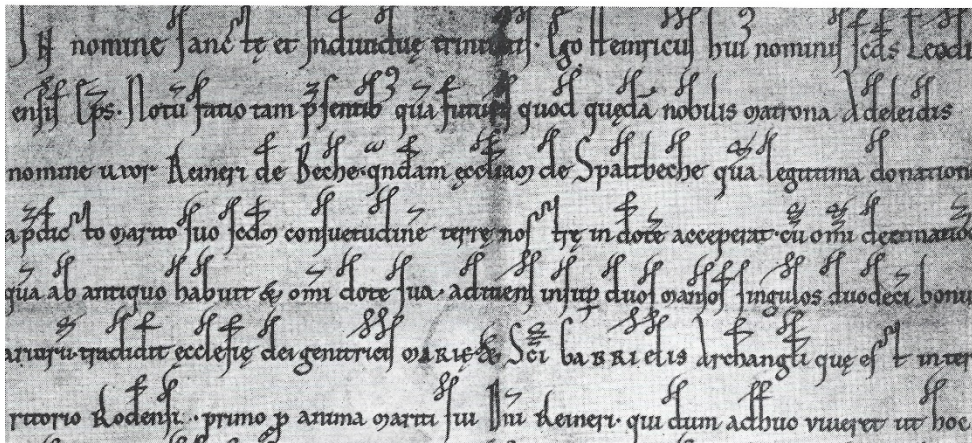 IN nomine sancte et Individuę trinitatis. Ego Heinricus hui nominis scds Leodi
ensis Eps. Notū facio tam psentib' quā futuris quod quędā nobilis matrona Adeleidis
nomine uxor Reineri de Beche. qndam ęccliam de Spaltbeche quā legitima donatione
a pdicto marito suo scdm consuetudinē terrę nostrę in dotē acceperat. cū omi decimatione
quā ab antiquo habuit & omi dote sua. adiciens insup duos mansos singulos duodeci bonu
ariorū. tradidit ęcclesię dei genitricis MARIĘ & Sci GABRIELIS Archangli quę est in ter
ritorio Rodensi. primo p anima mariti sui Dni Reineri. qui dum adhuc viveret ut hoc